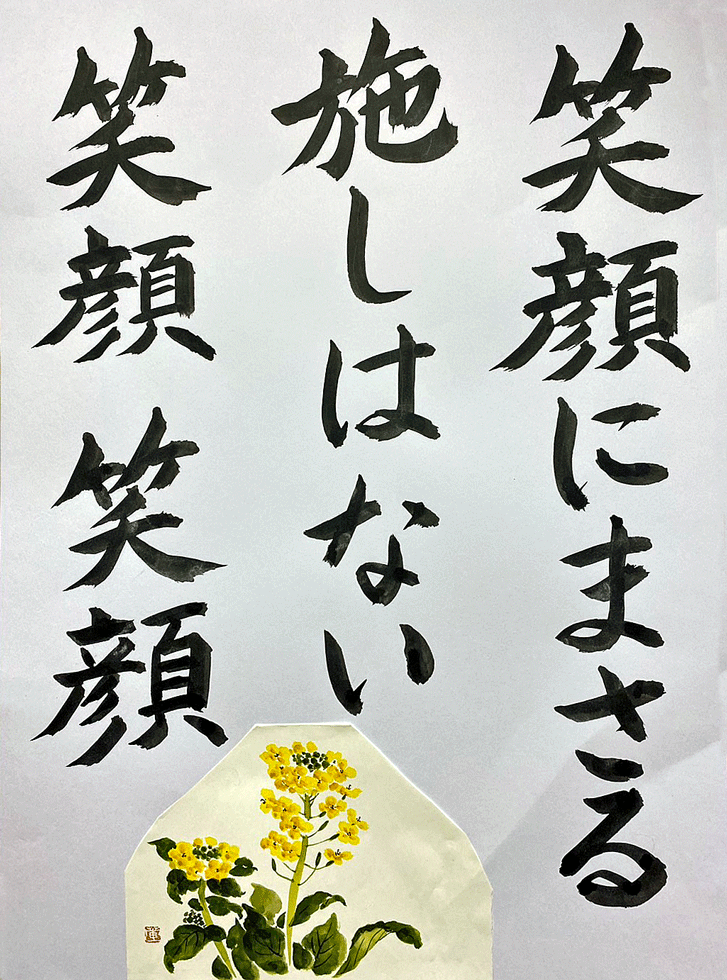 笑顔にまさる
施しはない
笑顔 笑顔